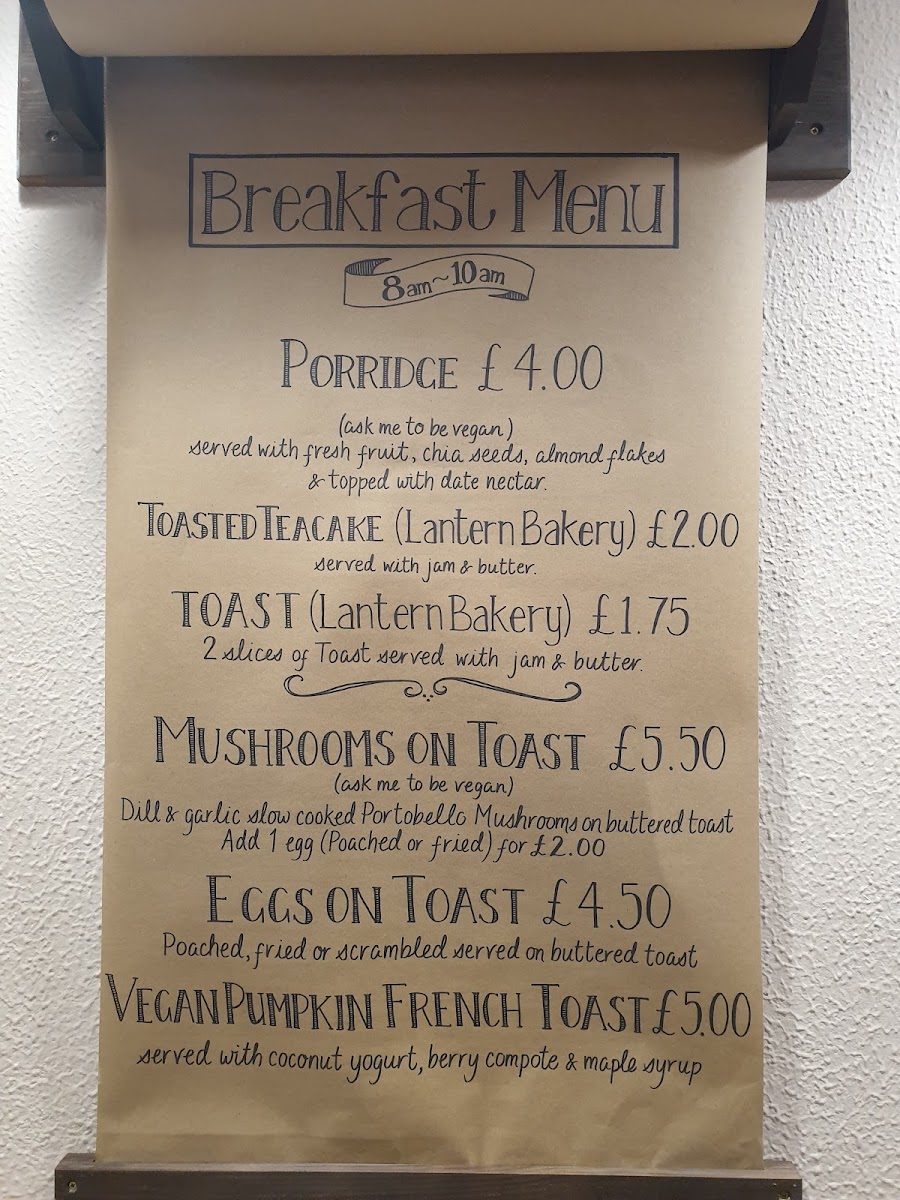 Breakfast Menu
8am~10am
PORRIDGE £4.00
(ask me to be vegan)
served with fresh fruit, chia seeds, almond flakes
& topped with date nectar.
TOASTED TEACAKE (Lantern Bakery) £2.00
served with jam & butter.
TOAST (Lantern Bakery) £1.75
2 slices of Toast served with jam & butter.
MUSHROOMS ON TOAST £5.50
(ask me to be vegan)
Dill & garlic slow cooked Portobello Mushrooms on buttered toast
Add 1 egg (Poached or fried) for £2.00
EGGS ON TOAST £4.50
Poached, fried or scrambled served on buttered toast
VEGAN PUMPKIN FRENCH TOAST £5.00
served with coconut yogurt, berry compote & maple syrup